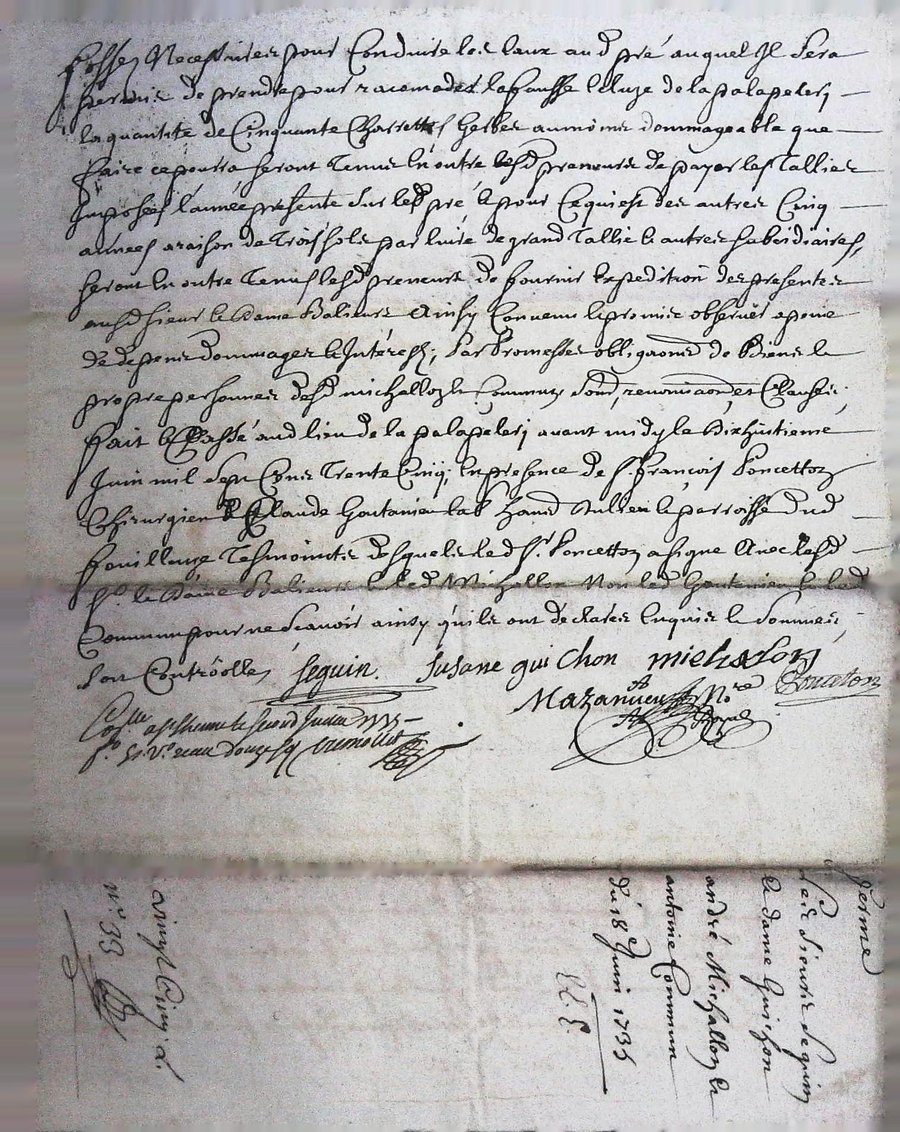 fossez Necessaires pour Conduire les Eaux aud pré auquel Il sera
permis de prendre pour racomoder la fausse Ecluze de la palapeleri
la quantité de Cinquante Charrettes herbes au moins dommageable que
faire ce pourra seront Tenus En outre lesd preneurs de payer les Tallies
Imposées l'année presente sur led pré Et pour Ce qui est des autres Cinq
années a raison de Trois sols par livre de grand Tallie Et autres subsidiaires,
seront En outre Tenus lesd preneurs de fournir Expedition des presentes
ausd sieur Et Dame Balieurs Ainsy Convenu Et promis observer a peine
de depens dommages Et Intérests; par Promesses obligaõns de Biens Et
propre personnes desd michallon Et Commun, renonciaõns et Clauses;
fait Et Passé aud lieu de la palapeleri avant midy le Dixhuitieme
Juin mil sept Cens Trente Cinq; En presence de sr. François Poncetton
Chirurgien Et Claude Goutanier parroisse dud
fouillouse Tesmoints desquels led sr. Poncetton a signe Avec lesd
sr. Et Dame Balieurs Et led Michallon Non led Goutanier Et led
Commun pour ne sçavoir ainsy qu'ils ont déclarés Enquis Et Sommés;
soit Contrôollé, seguin. susane guichon michalon
Mazanieu Nre Royal Ponceton
Collé a st Etienne le Juin 1735
fo. Vo. reçu Douze s
ferme
Par Le sr Seguin
Et dame Guichon
andré Michallon Et
antoine Commun
du 18 Juin 1735
E. E.
vingt Cinq a.
no. 33